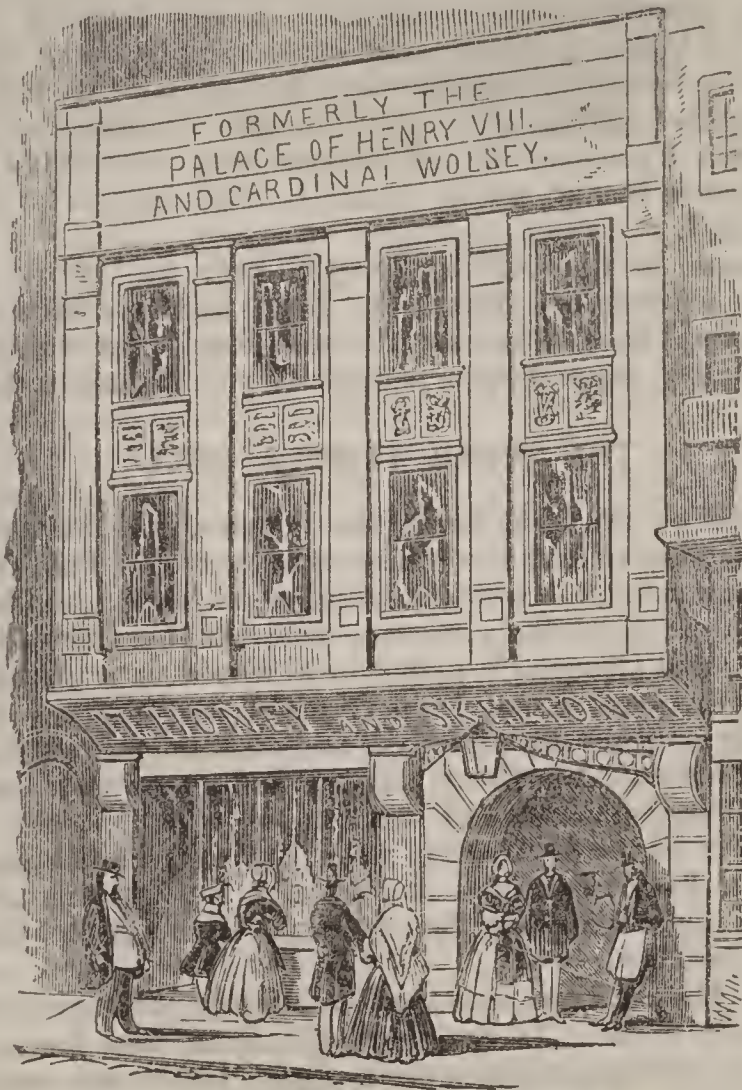 FORMERLY THE
PALACE OF HENRY VIII.
AND CARDINAL WOLSEY.
17. HONEY AND SKELTON. 17